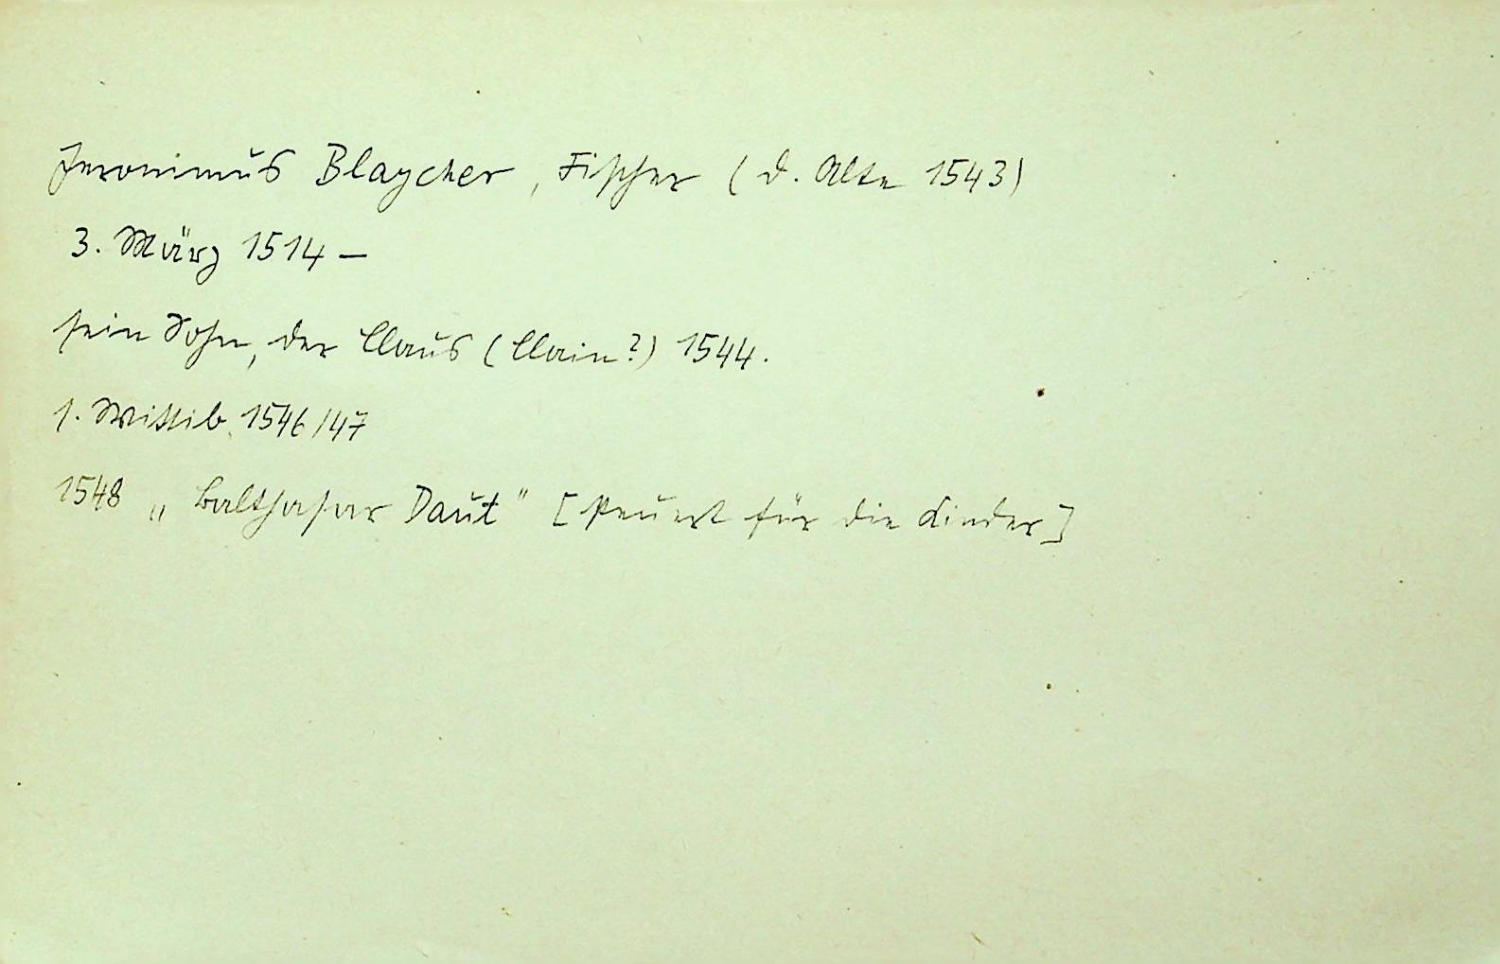 Jeronimus Blaycher, Fischer (d. Alte 1543)
3. März 1514 –
sein Sohn, der Claus (Clain?) 1544.
1. Wittib 1546/47
1548 „Balthasar Daut" [steuert für die Kinder]